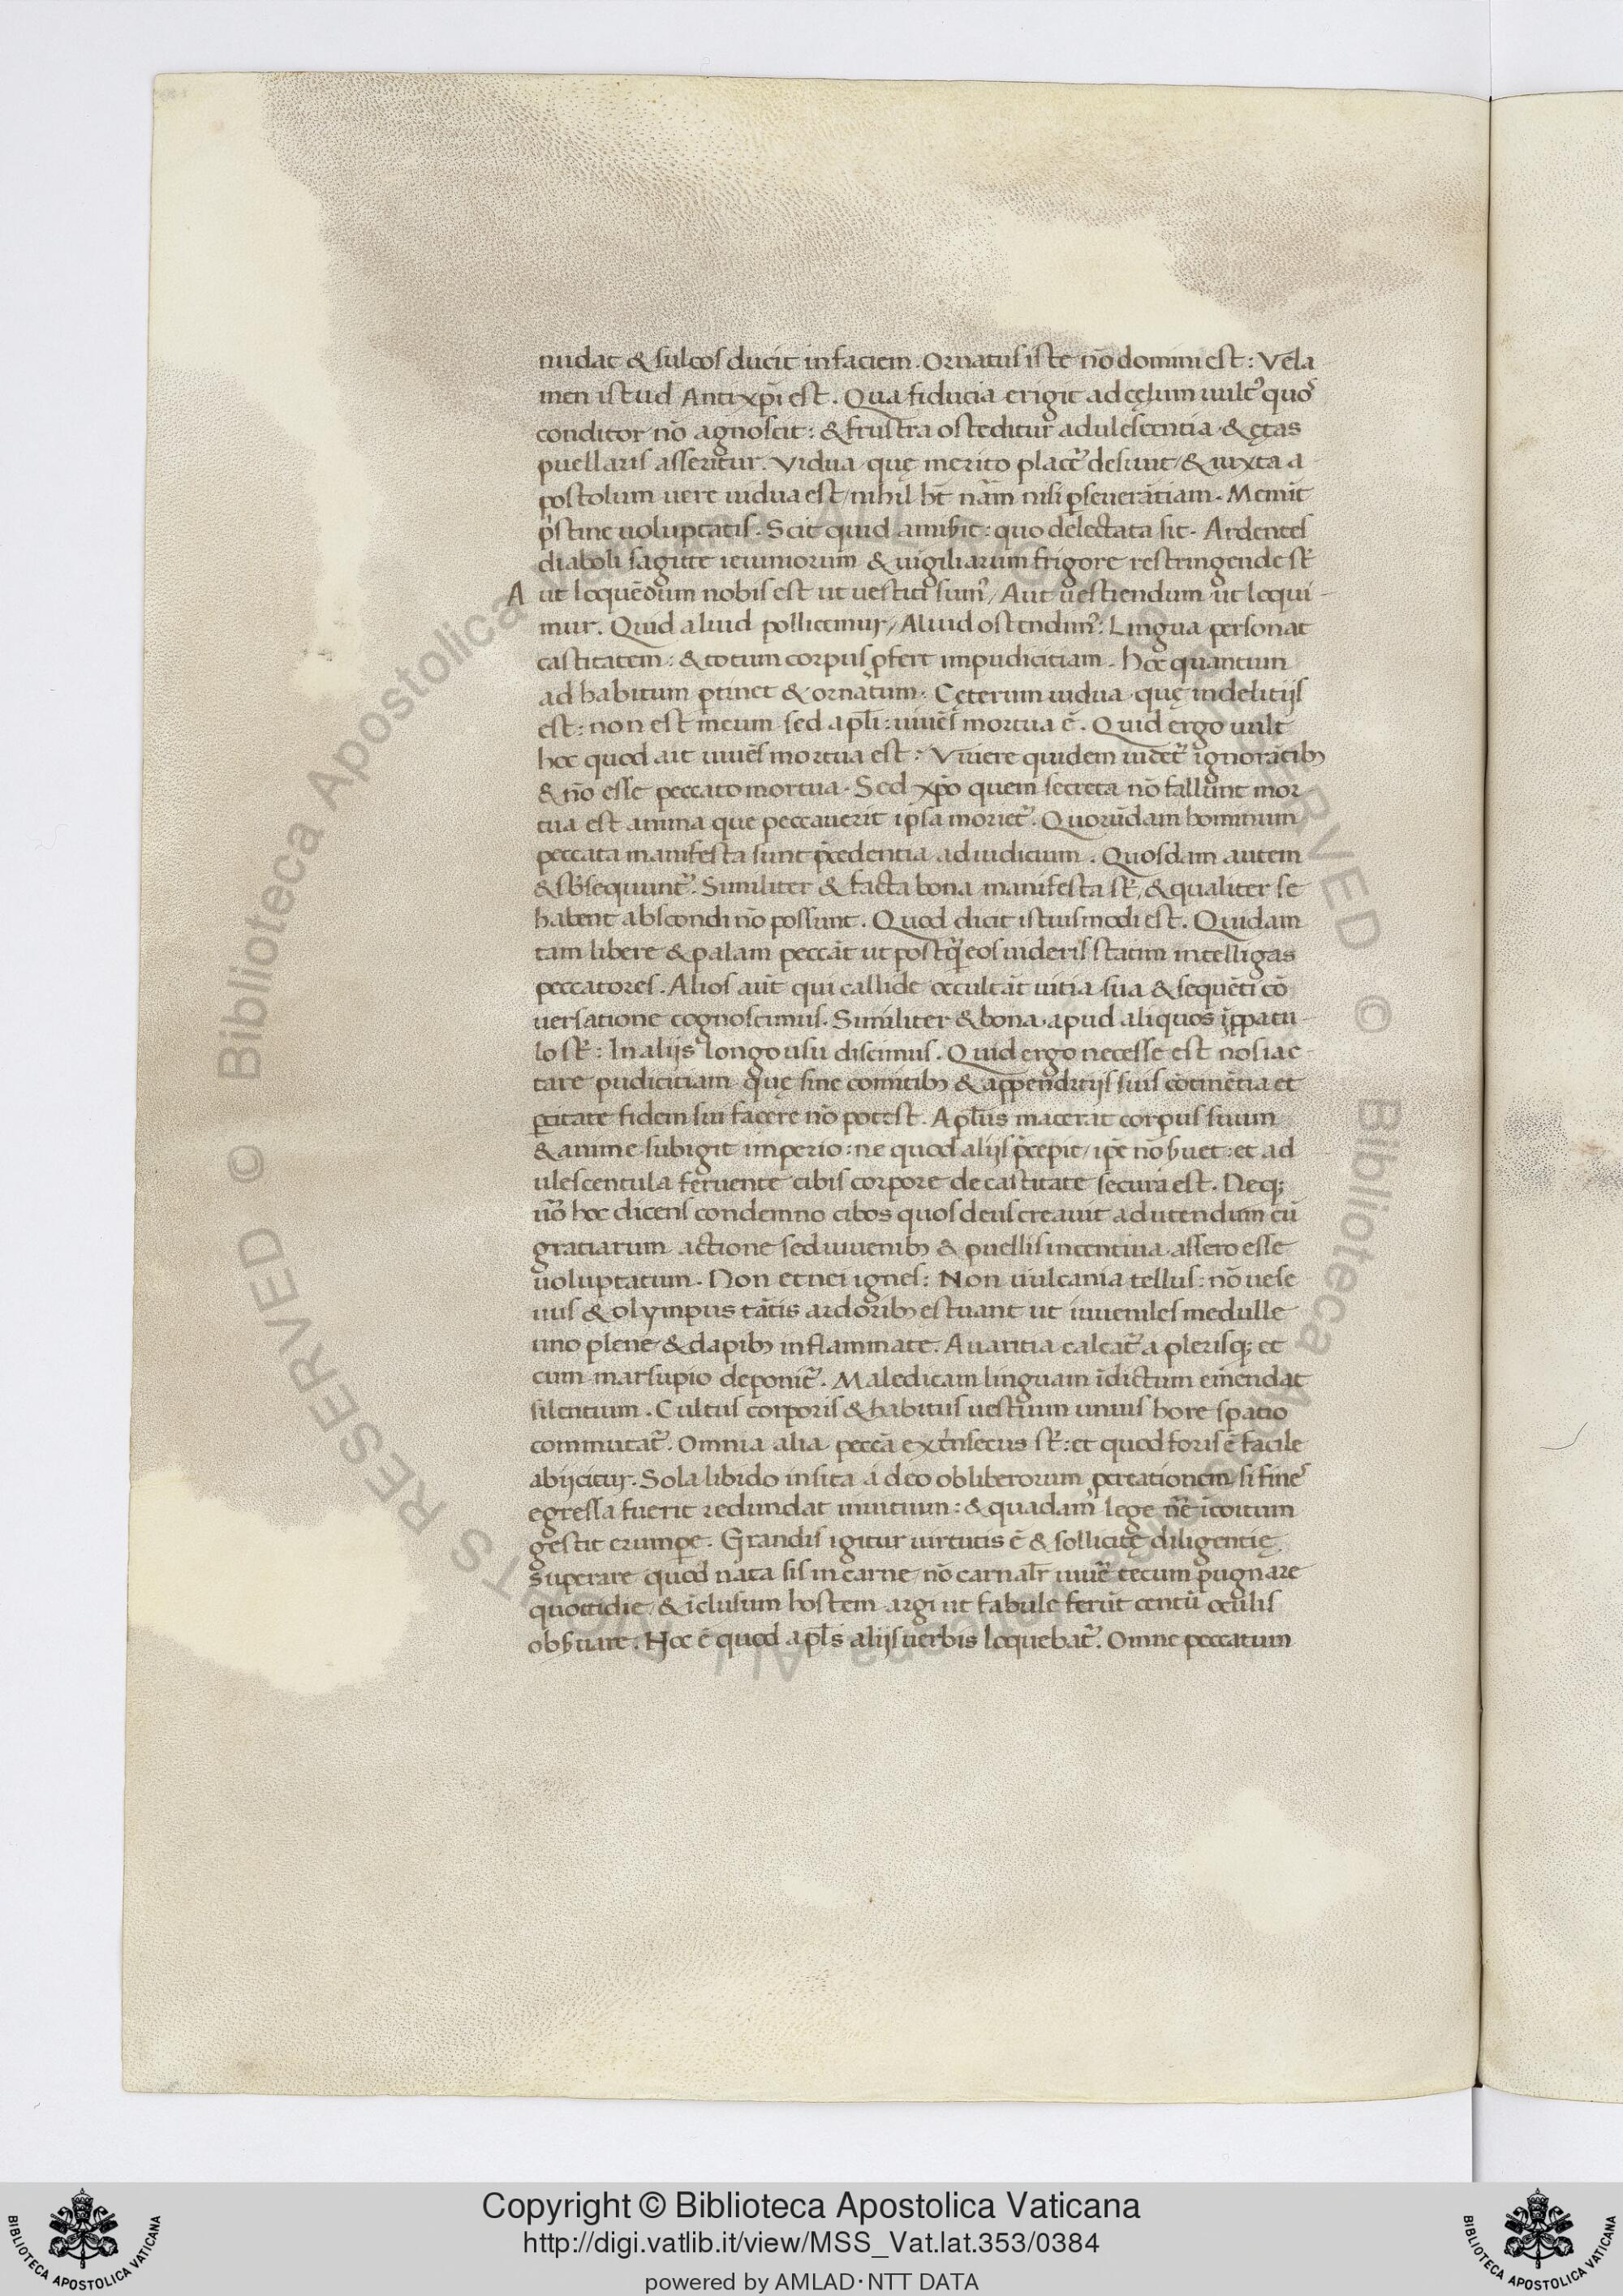 nudat & sulcos ducit in faciem. Ornatus iste nō domini est: Vela
men istud Antixp̄i est. Qua fiducia erigit ad cęlum uult᾽ quos
conditor nō agnoscit: & frustra osteditur adulescentia & ętas
puellaris asseritur. Vidua quę merito placer̄ desiuit / & iuxta a
postolum uere uidua est / nihil ht̄ nām nisi pseuerātiam. Memit
p̄stine uoluptatis. Scit quid amisit: quo delectata sit. Ardentes
diaboli sagitte ieiuniorum & uigiliarum frigore restringende st̄
A ut loquēdum nobis est ut uestiti sum᾽ / Aut uestiendum ut loqui
mur. Quid aliud pollicemur / Aliud ostendim᾽: Lingua personat
castitatem: & totum corpus pfert impudicitiam. Hoc quantum
ad habitum ptinet & ornatum. Cęterum uidua quę in delitijs
est: non est meum sed apl̄i: uiuēs mortua ē. Quid ergo uult
hoc quod ait uiuēs mortua est: Viuere quidem uidet᾽ ignorātib;
& nō esse peccato mortua. Sed xp̄o quem secreta nō fallunt mor
tua est anima que peccauerit ipsa moriet᾽. Quorūdam hominum
peccata manifesta sunt p̄cedentia ad iudicium. Quosdam autem
& sb̄sequunt᾽. Similiter & facta bona manifesta st̄, & qualiter se
habent abscondi nō possunt. Quod dicit istiusmodi est. Quidam
tam libere & palam peccāt ut postq̄ eos uideris statim intelligas
peccatores. Alios aūt qui callide occultāt uitia sua & sequēti cō
uersatione cognoscimus. Similiter & bona apud aliquos ī ppatu
lo st̄: In aliis longo usu discimus. Quid ergo necesse est nos iac
tare pudicitiam quę sine comitib; & appenditijs suis cōtinētia et
pcitate fidem sui facere nō potest. Apl̄us macerat corpus suum
& anime subigit imperio: ne quod alijs p̄cepit / ip̄e nō s̄uet: et ad
ulescentula feruente cibis corpore de castitate secura est. Neq;
uo᷒ hoc dicens condemno cibos quos deus creauit ad utendum cū
gratiarum actione sed iuuenib; & puellis incentiua assero esse
uoluptatum. Non etnei ignes: Non uulcania tellus: nō uese
uus & olympus tātis ardorib; estuant ut iuueniles medulle
uino plene & dapib; inflammate. Auaritia calcat᾽ a plerisq; et
cum marsupio deponit᾽. Maledicam linguam īdictum emēndat
silentium. Cultus corporis & habitus uestium unius hore spatio
commutat᾽. Omnia alia peccā extīnsecus st̄: et quod foris ē facile
abijcitur. Sola libido insita a deo ob liberorum pcreationem si fines
egressa fuerit redundat in uitium: & quadam lege nr̄e ī coitum
gestit erumpe. Grandis igitur uirtutis ē & sollicitę diligentię
superare quod nata sis in carne nō carnal̄r uiuēr tecum pugnare
quottidie, & īclusum hostem argi ut fabule ferūt centū oculis
obs̄uare. Hoc ē quod apl̄s alijs uerbis loquebat᾽. Omne peccatum
Copyright © Biblioteca Apostolica Vaticana
http://digi.vatlib.it/view/MSS_Vat.lat.353/0384
powered by AMLAD·NTT DATA